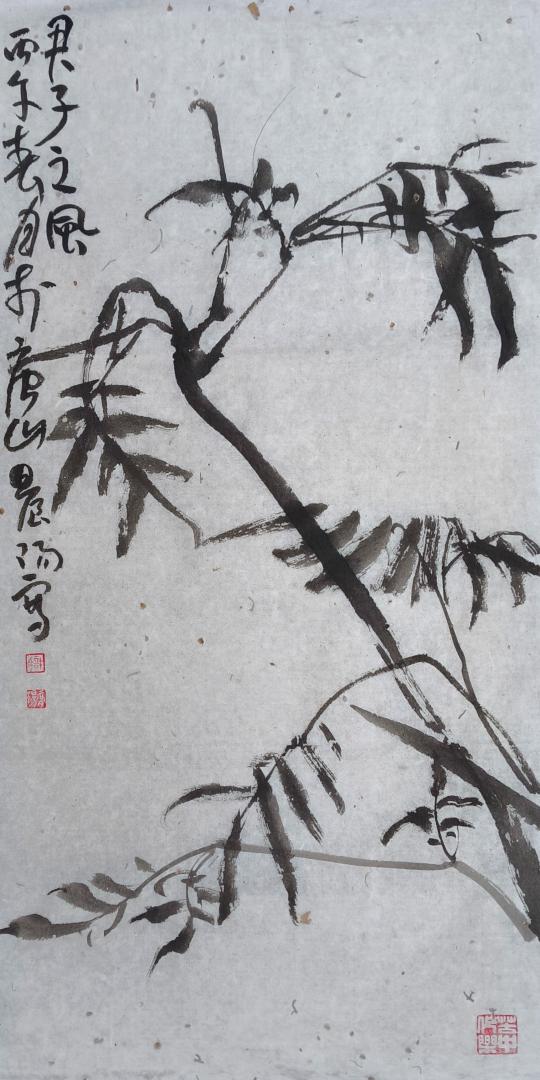 君子之風
丙午春月於唐山晨陽寫